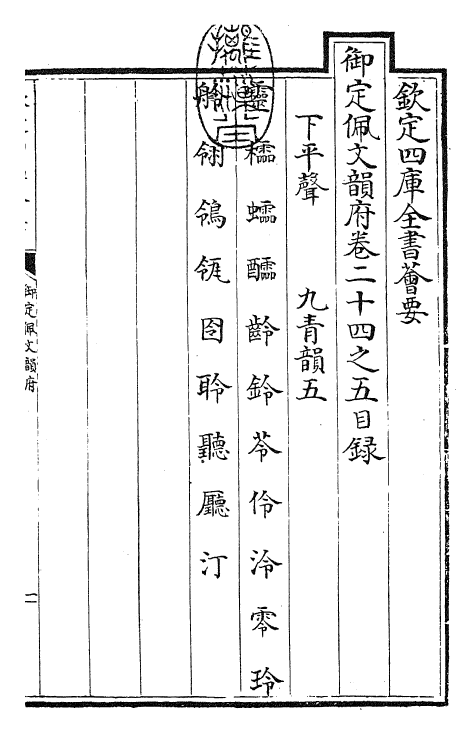 欽定四庫全書薈要
御定佩文韻府卷二十四之五目録
下平聲 九青韻五
靈櫺蠕醽齡鈴苓伶泠零玲
舲翎鴒瓴囹聆聽廳汀
御定佩文韻府
一